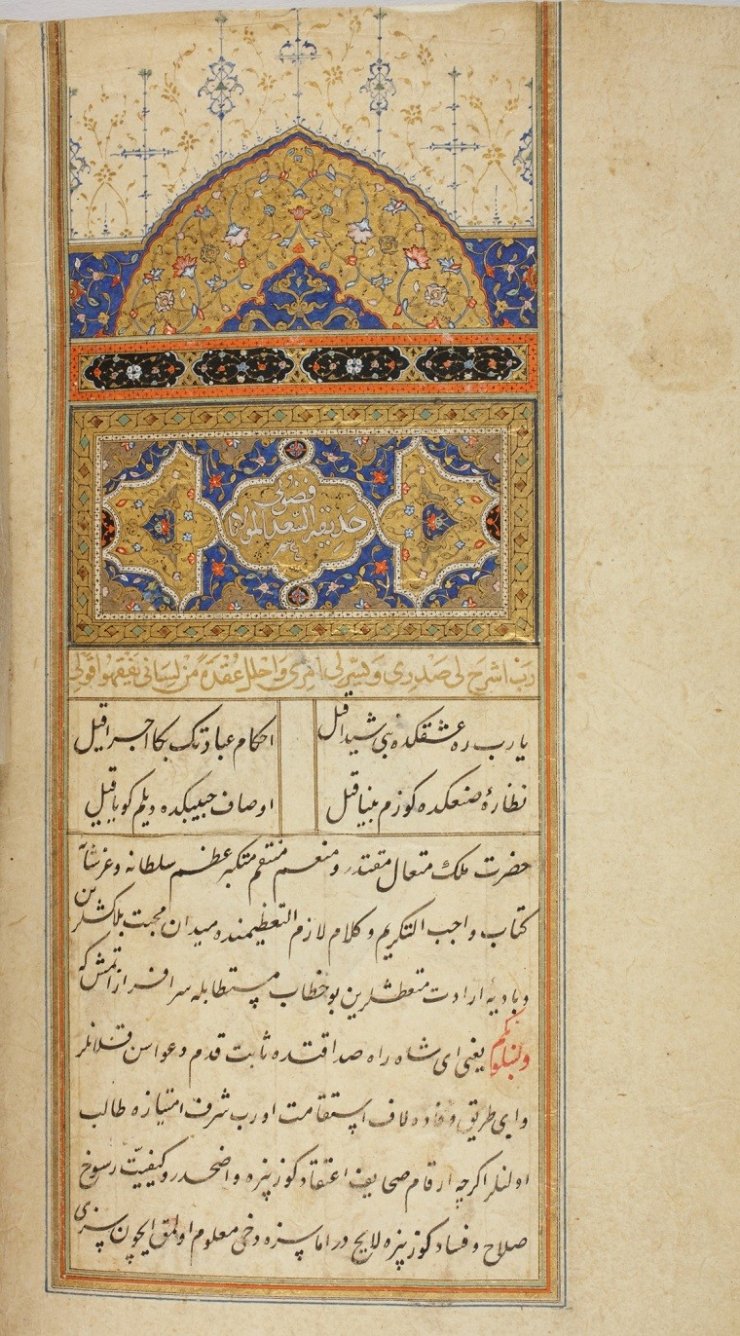 فضولی
حديقة السعدا لمولانا
رب اشرح لی صدری و یسر لی امری و احلل عقدة من لسانی یفقهوا قولی
یا رب ره عشقکده بنی شیدا قیل احکام عبادتک بکا اجرا قیل
نظارۀ صنعکده کوزم بینا قیل اوصاف حبیبکده دیلم کویا قیل
حضرت ملک متعال مقتدر و منعم منتقم متکبر عظم سلطانه و عز شانه
کتاب واجب التکریم و کلام لازم التعظیمنده میدان محبت بلاکشلرین
و بادیۀ ارادت متعطشلرین بو خطاب مستطابله سرافراز اتمش که
ولنبلونکم یعنی ای شاه راه صداقتده ثابت قدم دعواسن قلانلر
و ای طریق وفاده لاف استقامت اورب شرف امتیازه طالب
اولنلر اکرچه ارقام صحایف اعتقادکوز بزه واضحدر و کیفیت رسوخ
صلاح و فسادکوز بزه لایح در اما سزه دخی معلوم اولمق ایچون سزی